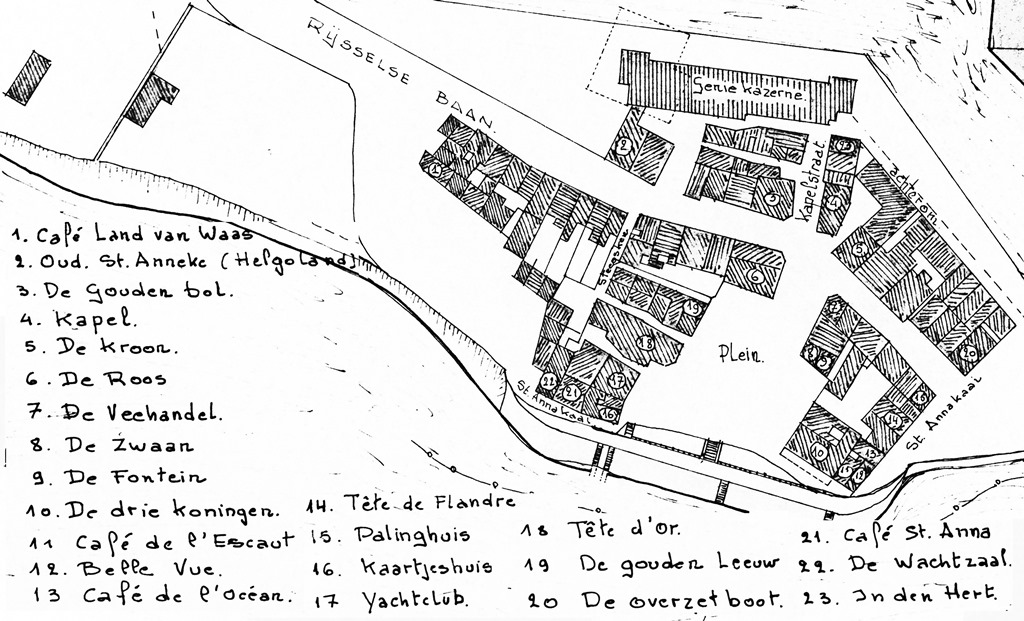 RIJSSELSE BAAN.
Genie Kazerne.
Kapelstraat
achterom
Plein.
St. Annakaai
St. Annakaai
1. Café Land van Waas
2. Oud. St. Anneke (Helgoland)
3. De Gouden bol.
4. Kapel.
5. De Kroon.
6. De Roos
7. De Veehandel.
8. De Zwaan
9. De Fontein
10. De drie Koningen.
11 Café de l'Escaut
12. Belle Vue.
13 Café de l'Océan.
14. Tête de Flandre
15. Palinghuis
16. Kaartjeshuis
17 Yachtclub.
18 Tête d'Or.
19 De gouden Leeuw
20 De overzetboot.
21. Café St. Anna
22. De Wachtzaal.
23. In den Hert.